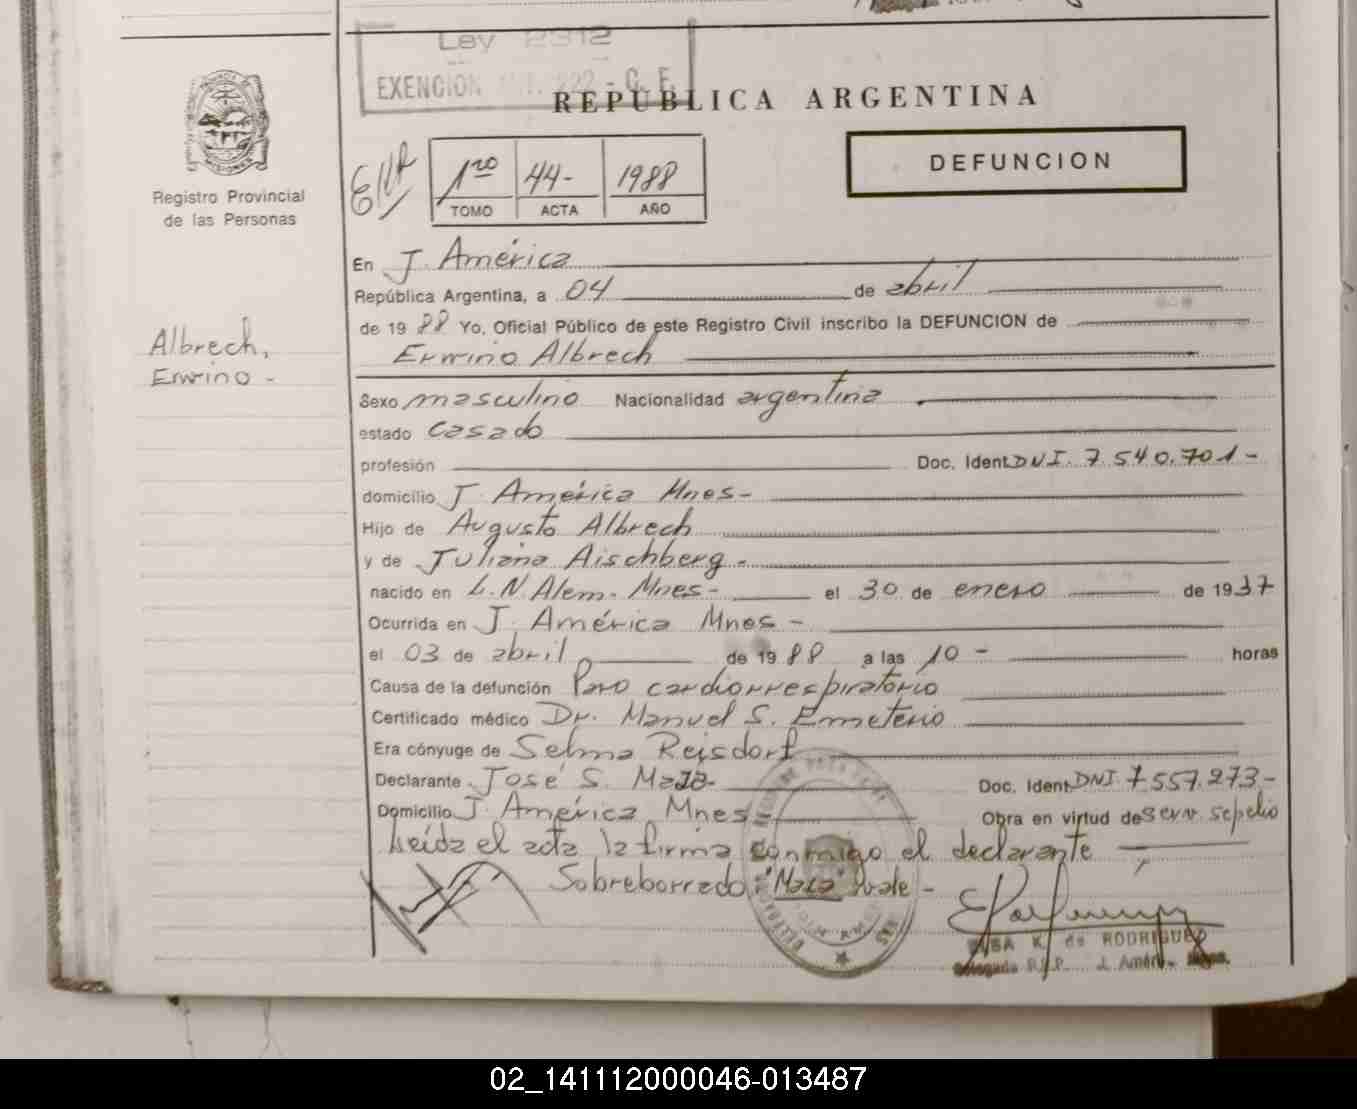 Ley 2312
EXENCION
REPUBLICA ARGENTINA
Registro Provincial
de las Personas
1ro 44- 1988
TOMO ACTA AÑO
DEFUNCION
En J. América
República Argentina, a 04 de abril
de 1988 Yo, Oficial Público de este Registro Civil inscribo la DEFUNCION de
Erwino Albrech
Albrech,
Erwino -
Sexo masculino Nacionalidad argentina
estado casado
profesión Doc. Ident. DNI. 7.540.701-
domicilio J. América Mnes-
Hijo de Augusto Albrech
y de Juliana Aischberg-
nacido en L.N. Alem- Mnes- el 30 de enero de 1937
Ocurrida en J. América Mnes-
el 03 de abril de 1988 a las 10 - horas
Causa de la defunción Paro cardiorrespiratorio
Certificado médico Dr. Manuel S. Emeterio
Era cónyuge de Selma Reisdorf
Declarante José S. Maza- Doc. Ident. DNI. 7557.273-
Domicilio J. América Mnes Obra en virtud de serv. sepelio
Leída el acta la firma conmigo el declarante
Sobreborrado: "Maza" Vale-
K. de RODRIGUEZ
Delegada R.P.P. J. Amér.
02_141112000046-013487